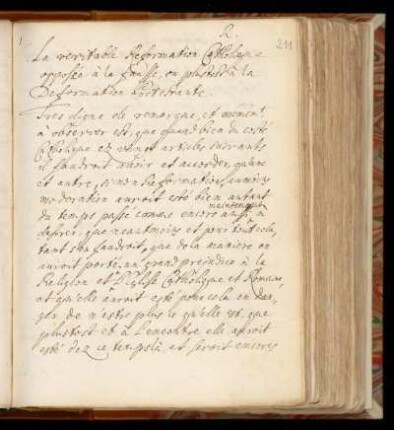 2.
211
La veritable Reformation Catholique
opposée à la fausse, ou plustost à la
Deformation Protestante.
Tres digne de remarque, et
à observer est, que quand bien du costé
Catholique ez vinct articles suivants
il faudroit avoir et accorder, qu'une
et autre, sinon Reformation, aumoins
moderation auroit esté bien autant
du temps passé comme encore aussi maintenant à
desirer, que neantmoins et pour tout cela,
tant s'en faudroit, que de la maniere on
auroit porté un grand prejudice à la
Religion et l'Eglise Catholique et Romaine,
et qu'elle auroit esté pour cela en dan-
ger de n'estre plus ce qu'elle est, que
plustost et à l'encontre elle auroit
esté dez ce temps là, et seroit encores